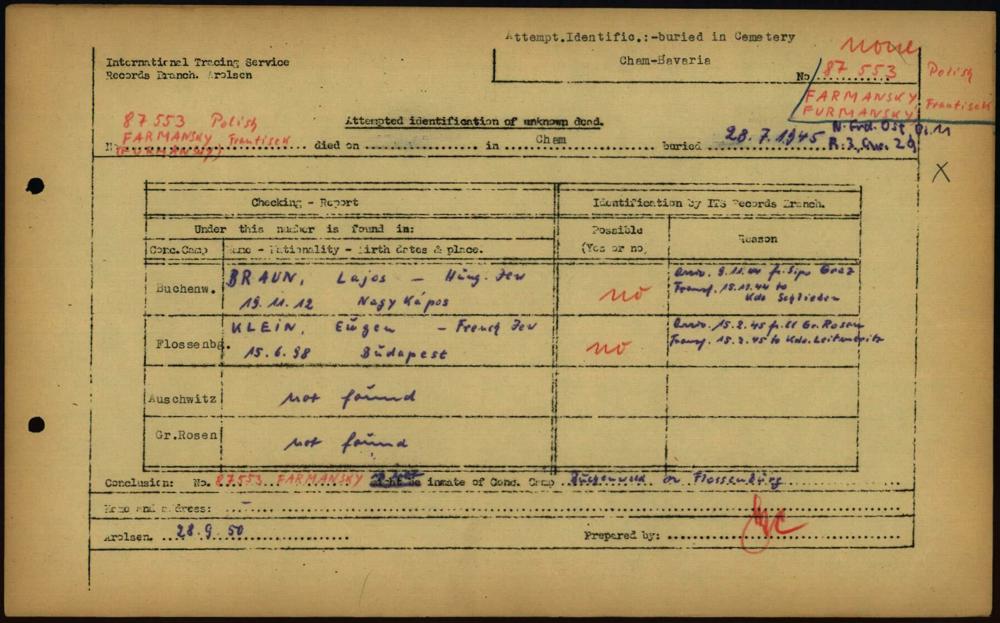 Attempt.Identific.:-buried in Cemetery
Cham-Bavaria
none
International Tracing Service
Records Branch. Arolsen
No 87 553 Polish
FARMANSKY, Frantisek
FURMANSKY,
87553 Polish
FARMANSKY, Frantisek
(FURMANSKY)
Attempted identification of unknown dead.
N. died on in Cham buried 28.7.1945 N. Grd. Ost,
R:3, 29
X
Checking - Report
Identification by ITS Records Branch.
Under this number is found in:
Possible
(Yes or no)
Reason
Conc.Camp Name - Nationality - Birth dates & place.
Buchenw. BRAUN, Lajos - Hung. Jew
19.11.12 Nagy Kápos
no
Arriv. 9.11.44 fr. Sipo Graz
Transf. 15.11.44 to
Kdo Schlieben
Flossenbg. KLEIN, Eugen - French Jew
15.6.98 Budapest
no
Arriv. 15.2.45 fr. Cl Gr. Rosen
Transf. 15.2.45 to Kdo. Leitmeritz
Auschwitz not found
Gr.Rosen not found
Conclusion: No. 87553 FARMANSKY inmate of Conc. Camp Buchenwald or Flossenbürg
Name and address: -
Arolsen. 28.9.50 Prepared by: